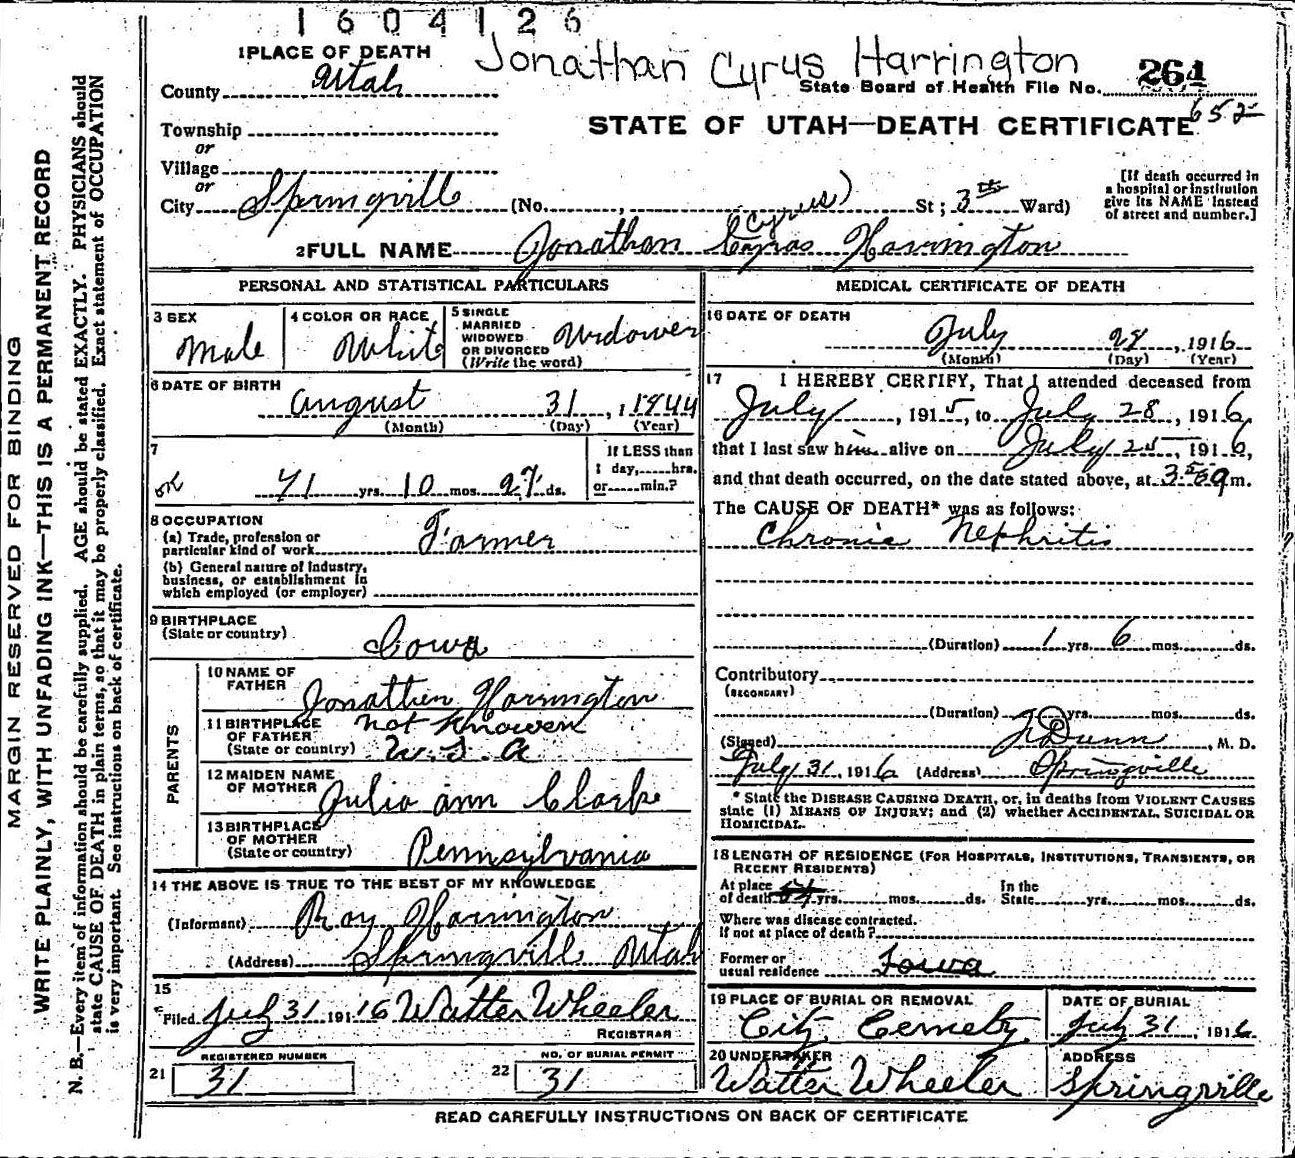 1604126
Jonathan Cyrus Harrington
1 PLACE OF DEATH
County Utah
State Board of Health File No. 264
652
Township
or
Village
or
STATE OF UTAH—DEATH CERTIFICATE
City Springville (No. , St; 3th Ward)
[If death occurred in
a hospital or institution
give its NAME instead
of street and number.]
Cyrus)
2 FULL NAME Jonathan Cyras Harrington
PERSONAL AND STATISTICAL PARTICULARS
3 SEX
Male
4 COLOR OR RACE
White
5 SINGLE
MARRIED
WIDOWED
OR DIVORCED
(Write the word)
Widower
6 DATE OF BIRTH
August 31, 1844
(Month) (Day) (Year)
7
OK
71 yrs. 10 mos. 27 ds.
If LESS than
1 day, hrs.
or min.?
8 OCCUPATION
(a) Trade, profession or
particular kind of work Farmer
(b) General nature of industry,
business, or establishment in
which employed (or employer)
9 BIRTHPLACE
(State or country) Iowa
PARENTS
10 NAME OF
FATHER Jonathen Harrington
11 BIRTHPLACE
OF FATHER
(State or country)
not Knowen
U.S.A
12 MAIDEN NAME
OF MOTHER Julia ann Clark
13 BIRTHPLACE
OF MOTHER
(State or country) Pennsylvania
14 THE ABOVE IS TRUE TO THE BEST OF MY KNOWLEDGE
(Informant) Roy Harrington
(Address) Springville Utah
15
Filed July 31 191 16 Walter Wheeler
REGISTRAR
REGISTERED NUMBER
21 31
NO. OF BURIAL PERMIT
22 31
MEDICAL CERTIFICATE OF DEATH
16 DATE OF DEATH
July 28, 1916
(Month) (Day) (Year)
17 I HEREBY CERTIFY, That I attended deceased from
July, 1915, to July 28, 1916,
that I last saw him alive on July 25, 1916,
and that death occurred, on the date stated above, at 3:50 a m.
The CAUSE OF DEATH* was as follows:
Chronic Nephritis
(Duration) 1 yrs. 6 mos. ds.
Contributory
(SECONDARY)
(Duration) yrs. mos. ds.
(Signed) Dunn, M. D.
July 31, 1916 (Address) Springville
* State the DISEASE CAUSING DEATH, or, in deaths from VIOLENT CAUSES
state (1) MEANS OF INJURY; and (2) whether ACCIDENTAL, SUICIDAL OR
HOMICIDAL.
18 LENGTH OF RESIDENCE (FOR HOSPITALS, INSTITUTIONS, TRANSIENTS, OR
RECENT RESIDENTS)
At place
of death yrs. mos. ds.
In the
State yrs. mos. ds.
Where was disease contracted.
If not at place of death?
Former or
usual residence Iowa
19 PLACE OF BURIAL OR REMOVAL
City Cemety
DATE OF BURIAL
July 31, 1916
20 UNDERTAKER
Walter Wheeler
ADDRESS
Springville
READ CAREFULLY INSTRUCTIONS ON BACK OF CERTIFICATE
MARGIN RESERVED FOR BINDING
WRITE PLAINLY, WITH UNFADING INK—THIS IS A PERMANENT RECORD
N. B.—Every item of information should be carefully supplied. AGE should be stated EXACTLY. PHYSICIANS should
state CAUSE OF DEATH in plain terms, so that it may be properly classified. Exact statement of OCCUPATION
is very important. See instructions on back of certificate.